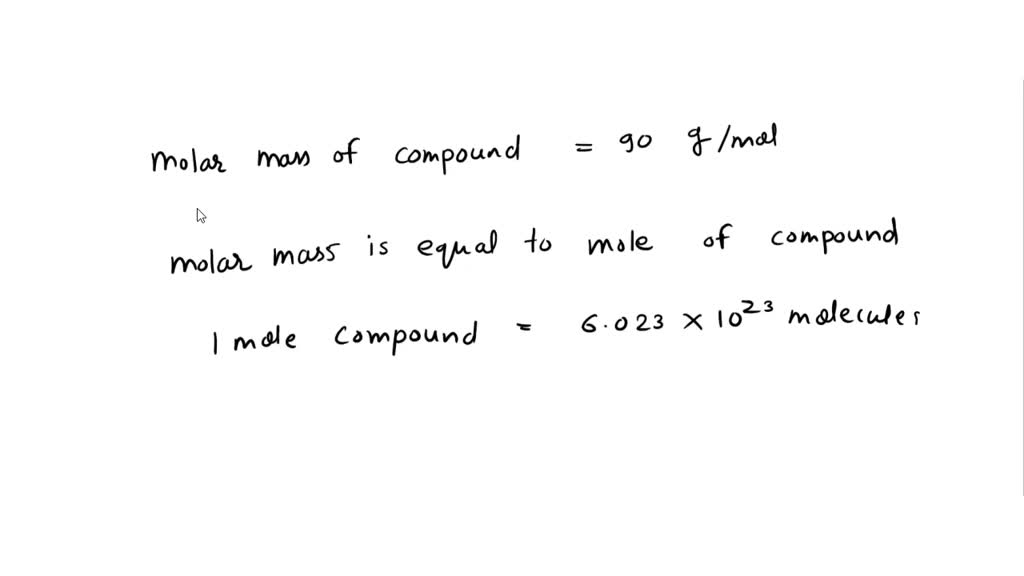 molar mass of compound = 90 g/mol
molar mass is equal to mole of compound
1 mole compound = 6.023 × 10²³ molecules